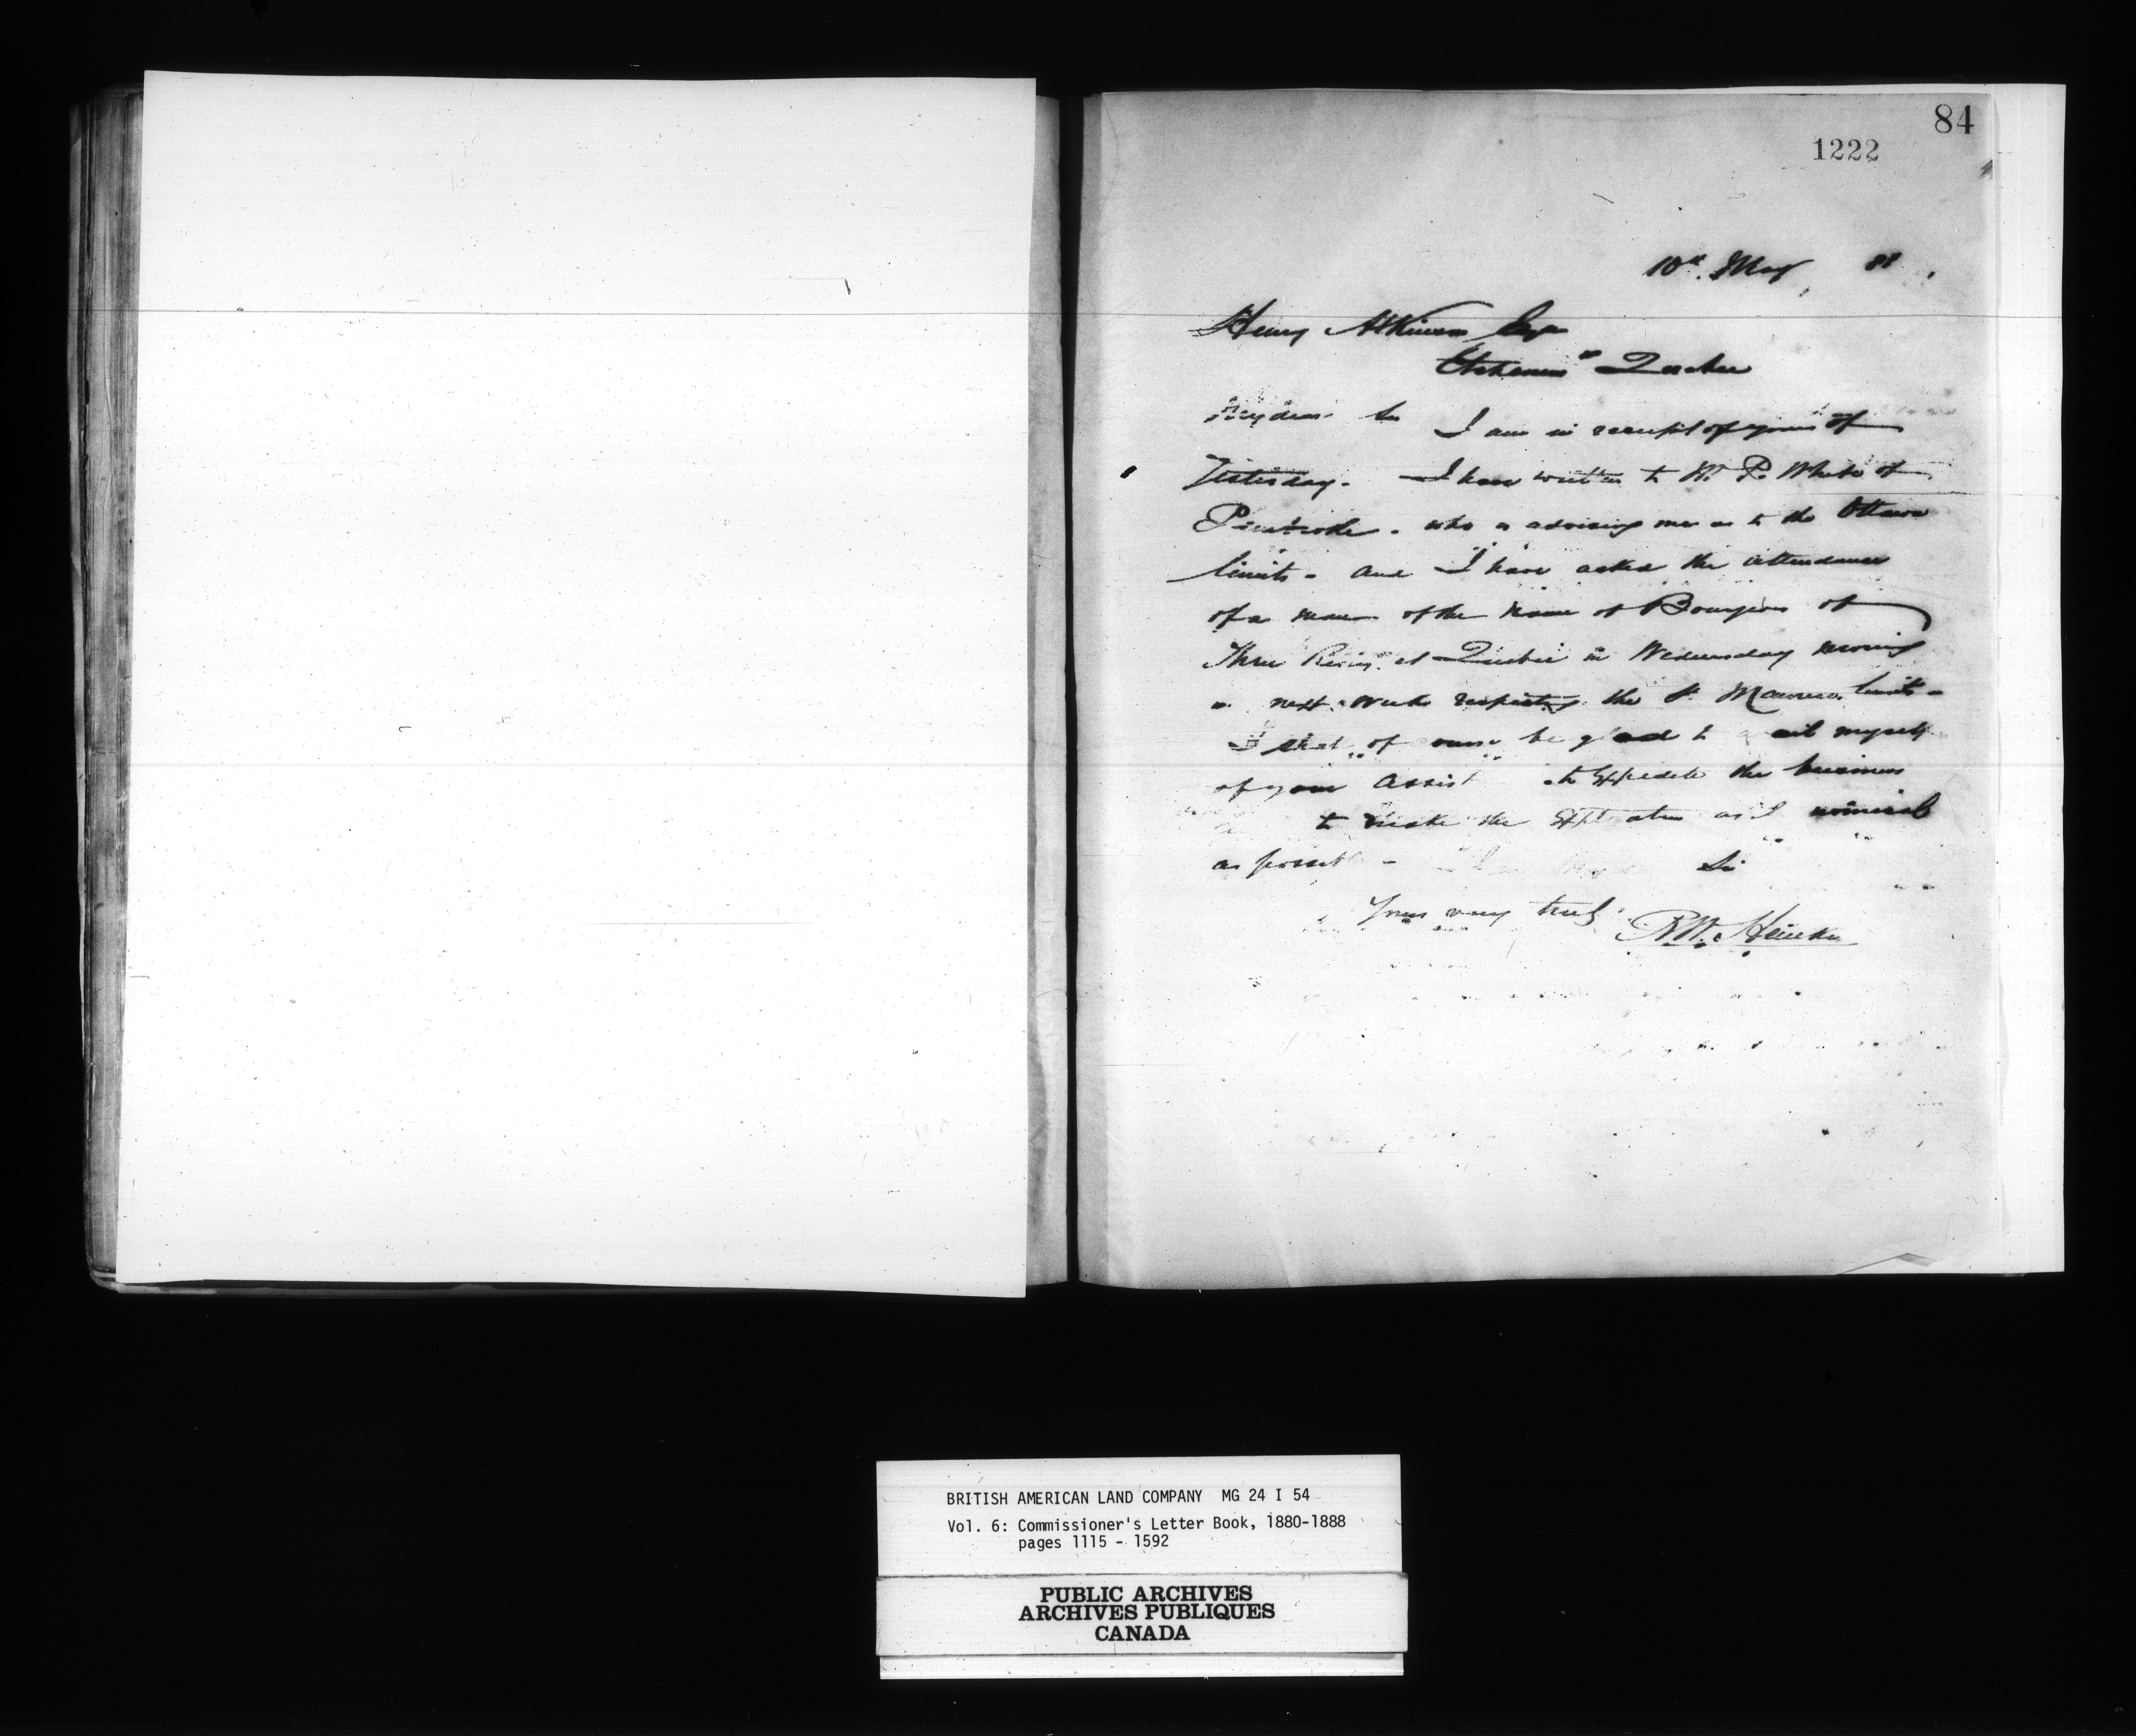 84
1222
10th May 81
Henry Atkinson Esqr
Etchemin Quebec
My dear Sir
I am in receipt of yours of
Yesterday. I have written to W. R. White of
Pembroke. who is advising me as to the Ottawa
limits - and I have asked the attendance
of a man of the name of Bourgeois of
Three Rivers at Quebec on Wednesday morning
next week respecting the St Maurice limits -
I shall of course be glad to avail myself
of your assist to expedite the business
to make the as
as possible - Sir
Yours very truly
R.W. Heneker
BRITISH AMERICAN LAND COMPANY MG 24 I 54
Vol. 6: Commissioner's Letter Book, 1880-1888
pages 1115 - 1592
PUBLIC ARCHIVES
ARCHIVES PUBLIQUES
CANADA